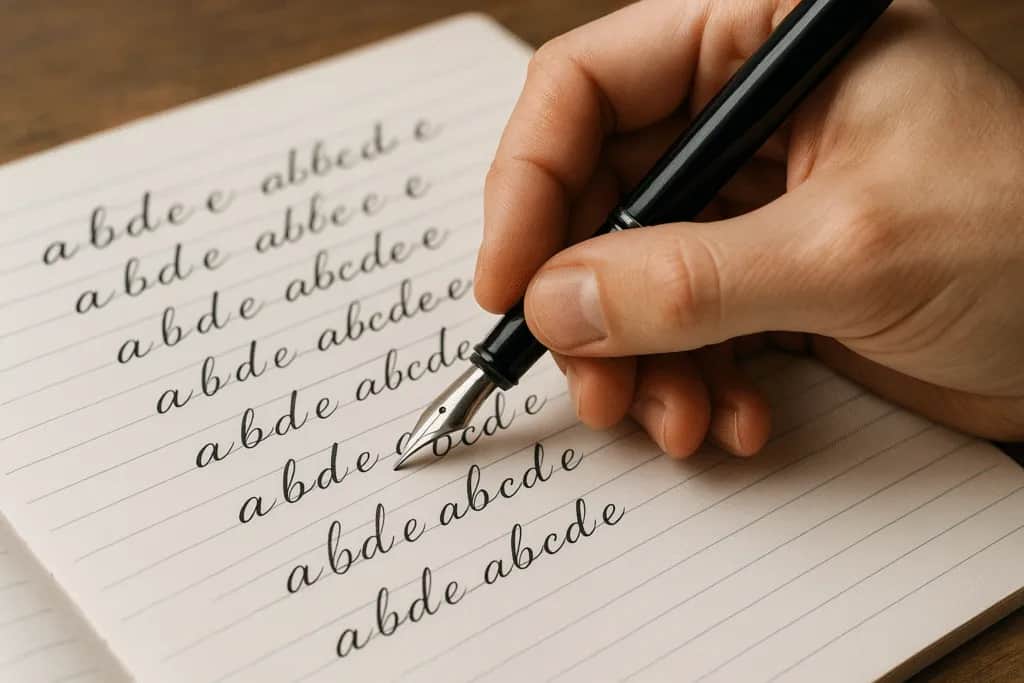 a b d e e abbcd e
a b d e abbc e e
a b d e abcde e
a b d e abcde e
a b d e abcde
a b d e
a b d e abcd e
a b d e abcde